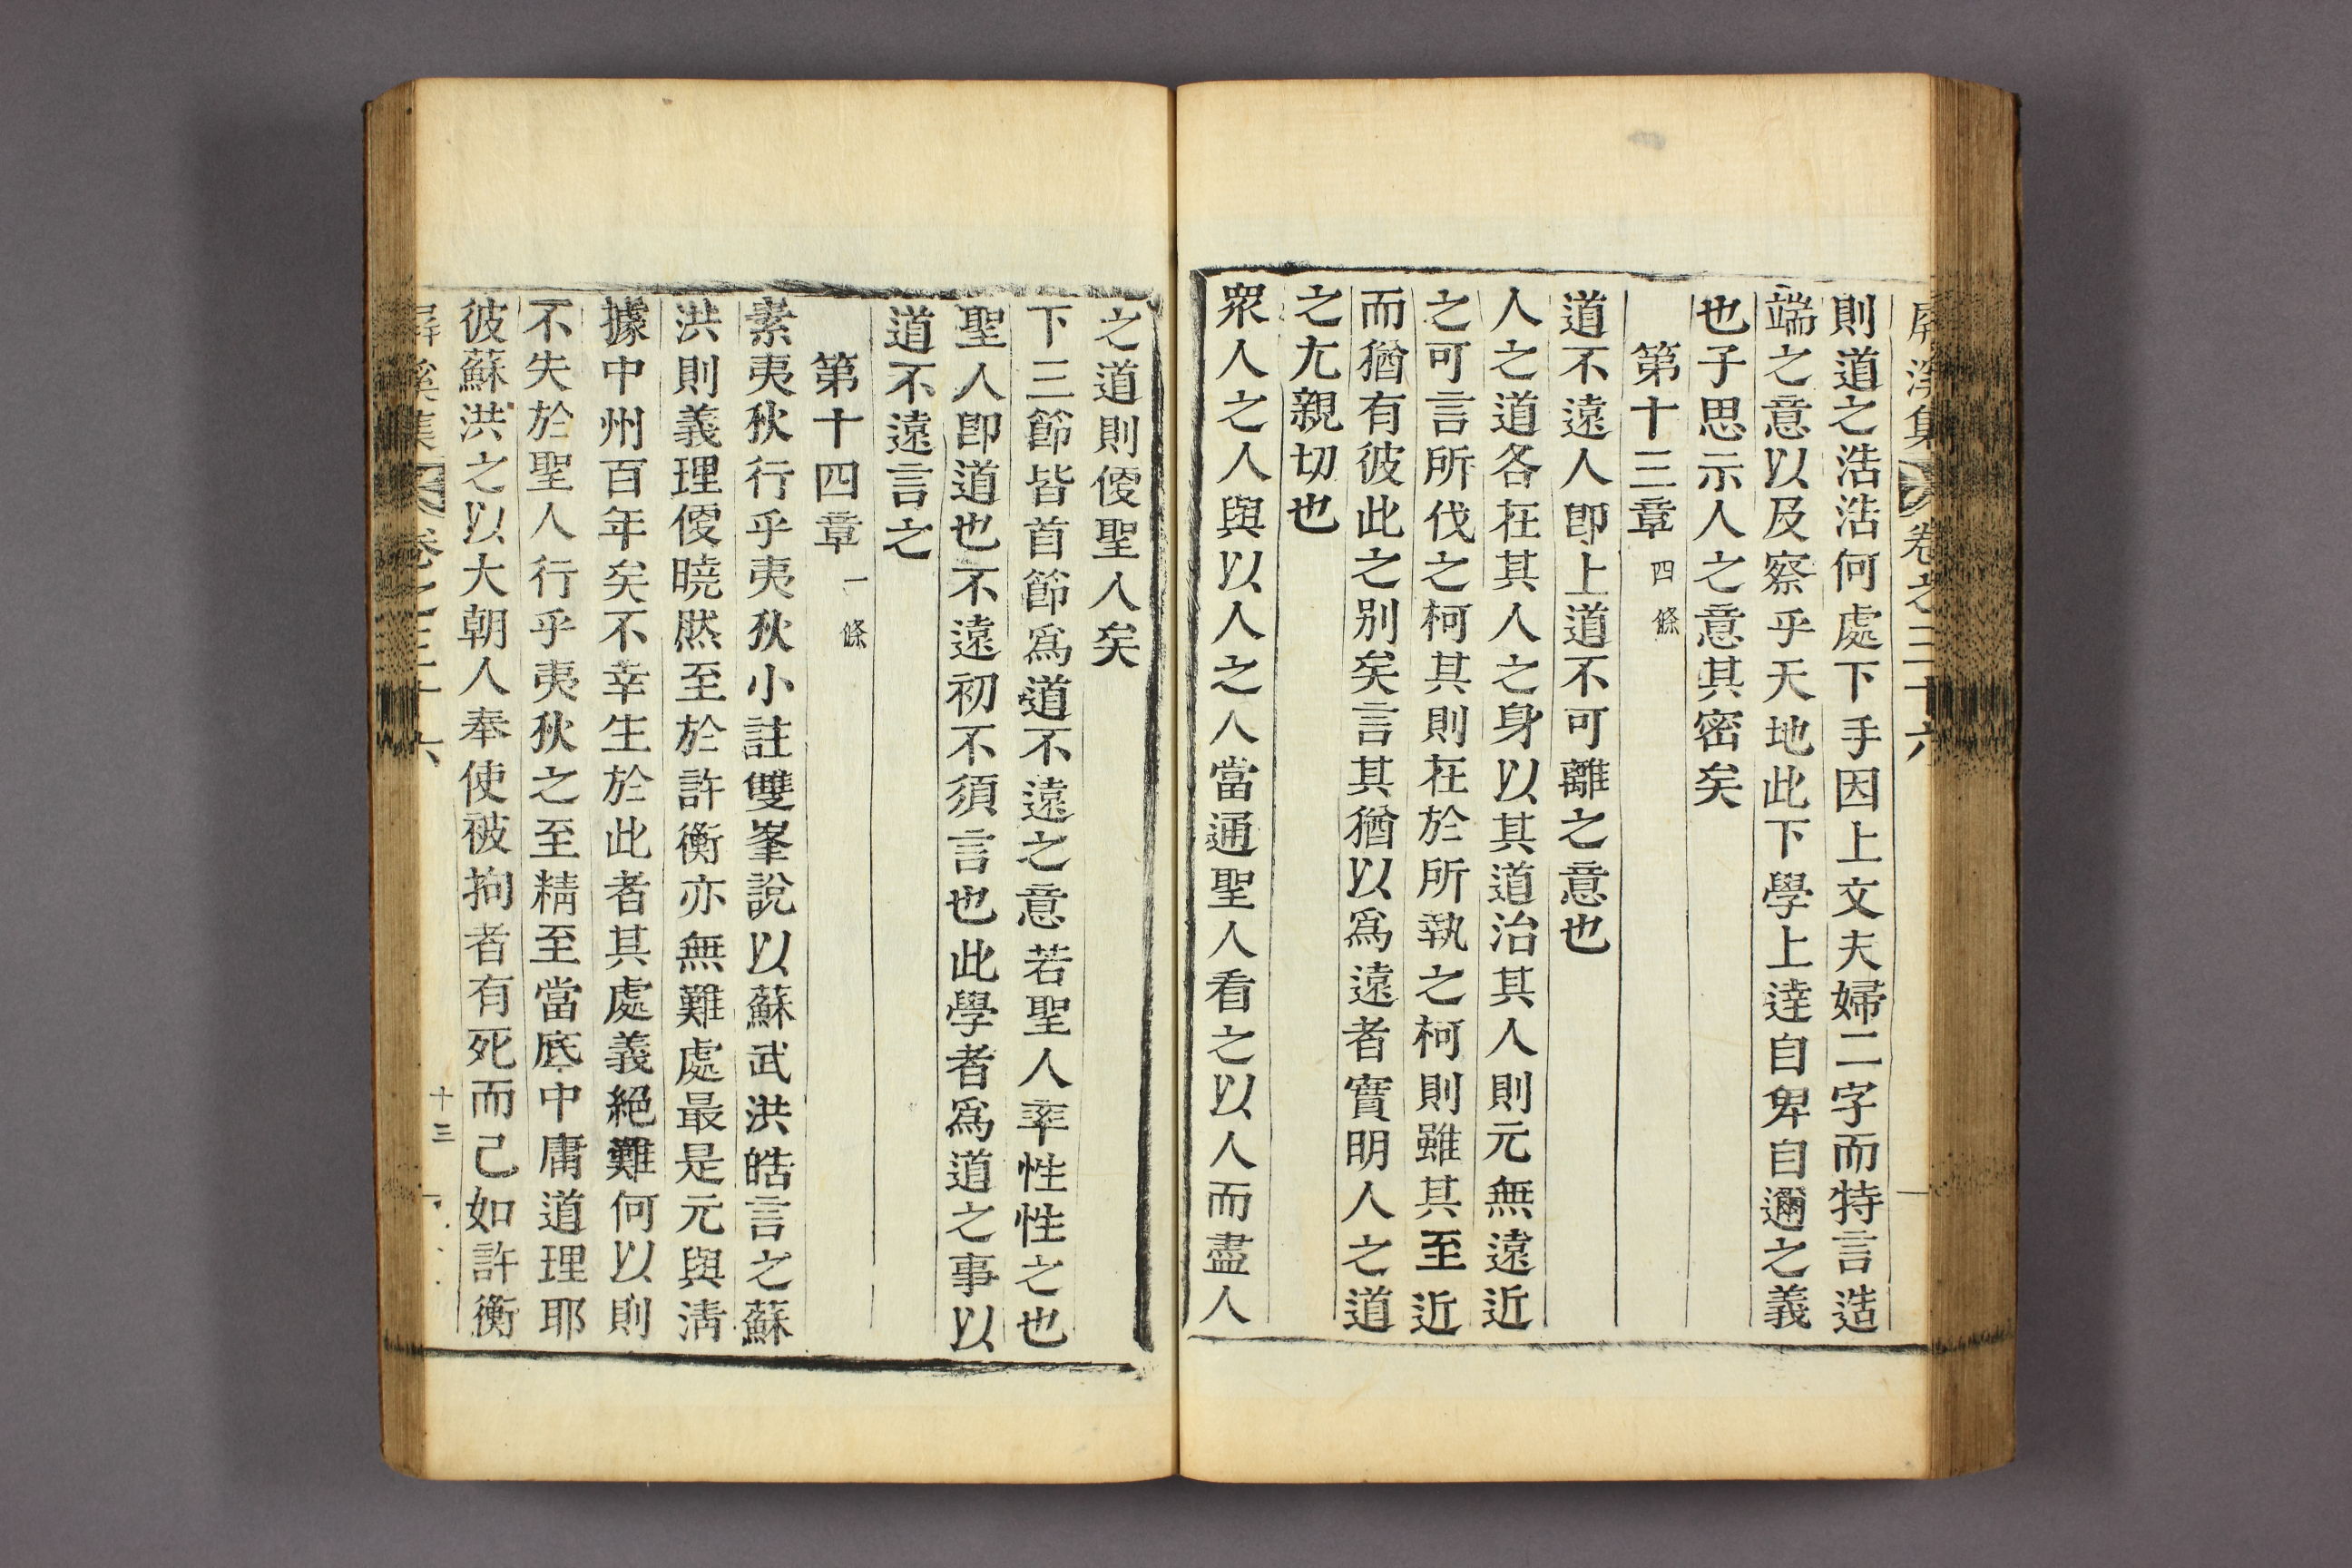 屛溪集 卷之三十六
則道之浩浩何處下手因上文夫婦二字而特言造
端之意以及察乎天地此下學上達自卑自邇之義
也子思示人之意其密矣
第十三章 四條
道不遠人卽上道不可離之意也
人之道各在其人之身以其道治其人則元無遠近
之可言所伐之柯其則在於所執之柯則雖其至近
而猶有彼此之別矣言其猶以爲遠者實明人之道
之尤親切也
衆人之人與以人之人當通聖人看之以人而盡人
之道則便聖人矣
下三節皆首節爲道不遠之意若聖人率性性之也
聖人卽道也不遠初不須言也此學者爲道之事以
道不遠言之
第十四章 一條
素夷狄行乎夷狄小註雙峯說以蘇武洪皓言之蘇
洪則義理便曉然至於許衡亦無難處最是元與淸
據中州百年矣不幸生於此者其處義絕難何以則
不失於聖人行乎夷狄之至精至當底中庸道理耶
彼蘇洪之以大朝人奉使被拘者有死而已如許衡
屛溪集 卷之三十六 十三